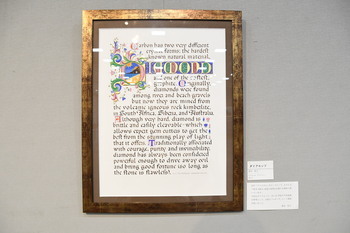 Carbon has two very different
crystal forms: the hardest
known natural material,
DIAMOND
and one of the softest,
graphite. Originally,
diamonds were found
among river and beach gravels
but now they are mined from
the volcanic igneous rock kimberlite,
in South Africa, Siberia, and Australia.
Although very hard, diamond is a
brittle and easily cleavable - which
allows expert gem cutters to get the
best from the stunning play of light
that it offers. Traditionally associated
with courage, purity and invincibility,
diamond has always been considered
powerful enough to drive away evil
and bring good fortune (so long as
the stone is flawless).